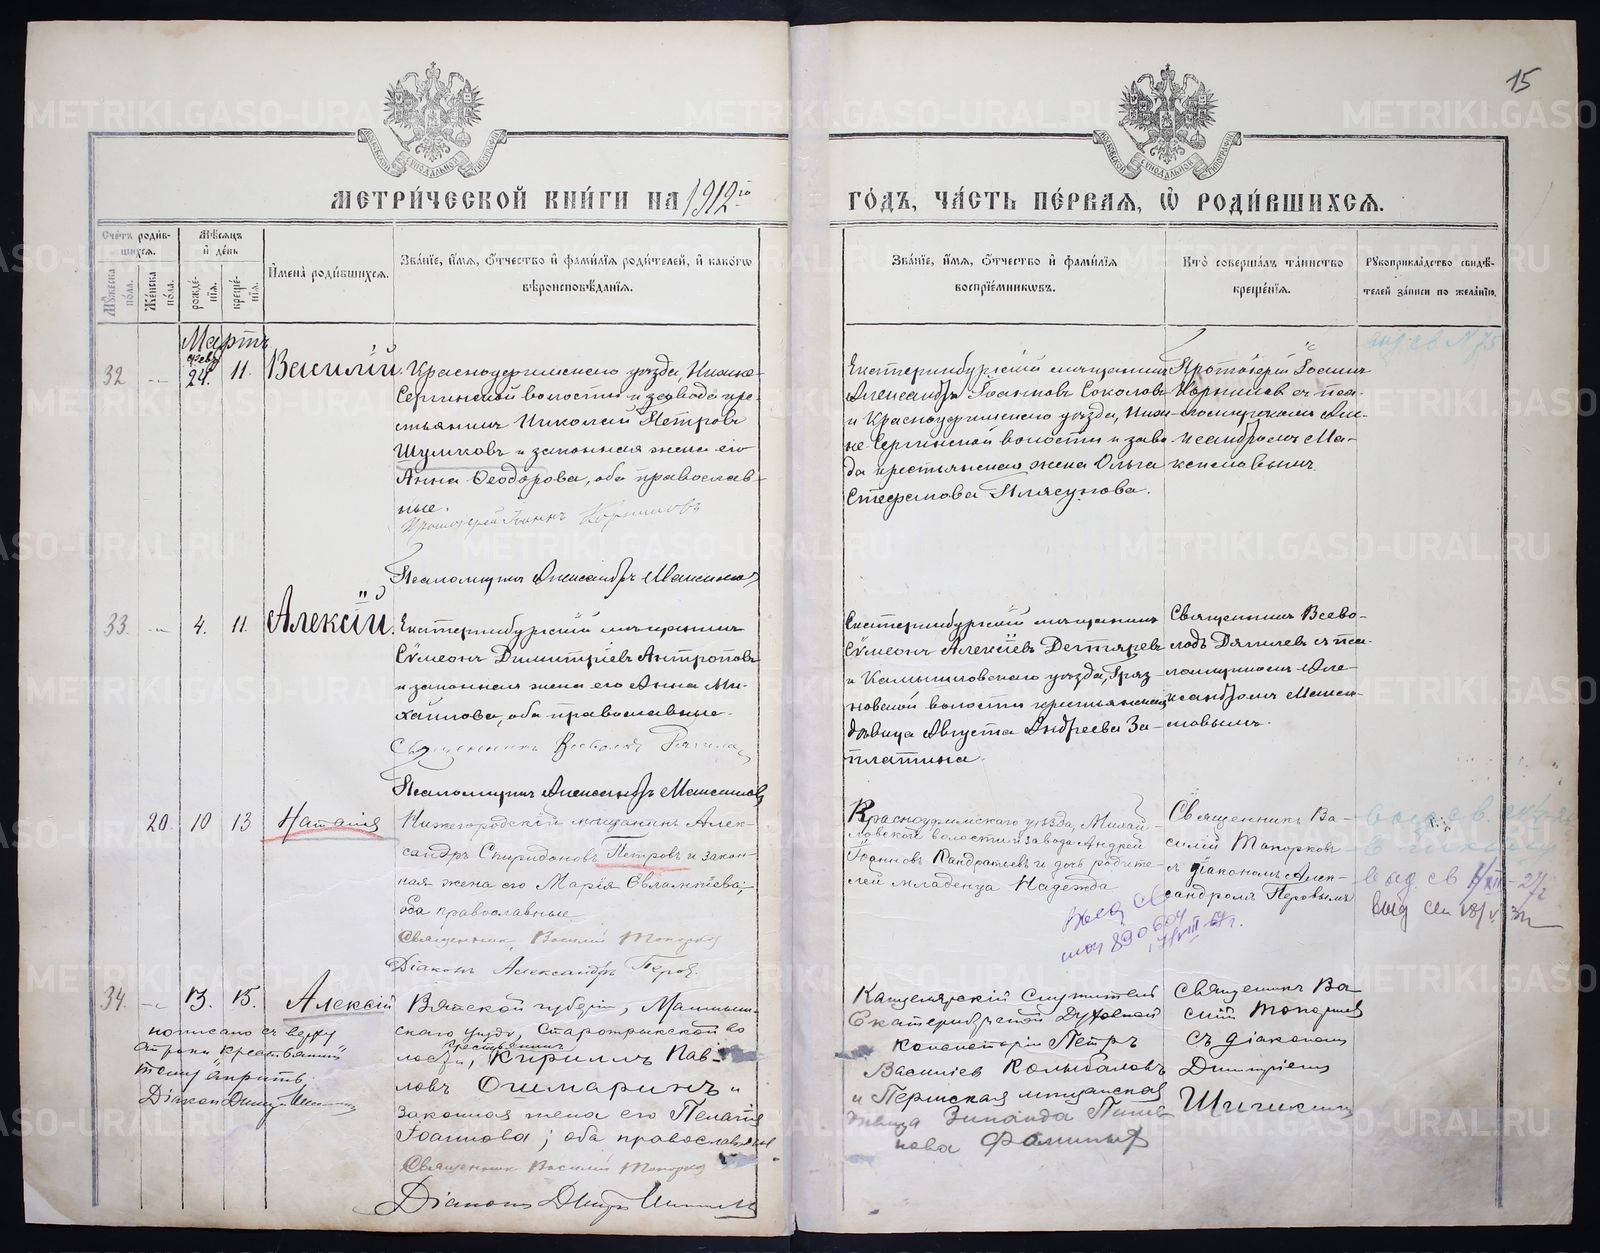 15
МЕТРИ́ЧЕСКОЙ КНИ́ГИ НА 1912го ГО́ДЪ, ЧА́СТЬ ПЕ́РВАЯ, Ѽ РОДИ́ВШИХСѦ.
Сче́тъ роди́вшихсѧ.
Мꙋ́жеска по́ла.
Же́нска по́ла.
Мѣ́сѧцъ и҆ де́нь
рожде́нїѧ.
креще́нїѧ.
И҆мена̀ роди́вшихсѧ.
Зва́нїе, и҆́мѧ, ѻ҆́тчество и҆ фами́лїѧ роди́телей, и҆ како́гѡ вѣроисповѣ́данїѧ.
Зва́нїе, и҆́мѧ, ѻ҆́тчество и҆ фами́лїѧ воспрїе́мникѡвъ.
Кто̀ соверша́лъ та́инство креще́нїѧ.
Рꙋкоприкла́дство свидѣ́телей за́писи по жела́нїю.
Мартъ
32
фев.
24.
11.
Василій.
Красноуфимскаго уѣзда, Нижне-
Сергинской волости и завода кре-
стьянинъ Николай Петровъ
Шумковъ и законная жена его
Анна Ѳеодорова, оба православ-
ные.
Протоіерей Іоаннъ Корниловъ
Псаломщикъ Александръ Максимовъ
Екатеринбургскій мѣщанинъ
Александръ Іоанновъ Соколовъ
и Красноуфимскаго уѣзда, Ниж-
не-Сергинской волости и заво-
да крестьянская жена Ольга
Стефанова Плясунова.
Протоіерей Іоаннъ
Корниловъ съ пса-
ломщикомъ Але-
ксандромъ Ма-
ксимовымъ
33.
4.
11.
Алексій.
Екатеринбургскій мѣщанинъ
Сѵмеонъ Димитріевъ Антроповъ
и законная жена его Анна Ми-
хайлова, оба православные.
Священникъ Всеволодъ
Псаломщикъ Александръ Максимовъ
Екатеринбургскій мѣщанинъ
Сѵмеонъ Алексіевъ Дегтяревъ
и Камышловскаго уѣзда, Гряз-
новской волости крестьянская
дѣвица Августа Андреева За-
платина.
Священникъ Всево-
лодъ съ пса-
ломщикомъ Але-
ксандромъ Макси-
мовымъ.
20.
10
13
Наталія
Нижегородскій мѣщанинъ Алек-
сандръ Спиридоновъ Петровъ и закон-
ная жена его Марія Евлампіева;
оба православные
Священникъ Василій Топорковъ
Діаконъ Александръ Перовъ.
Красноуфимскаго уѣзда, Михай-
ловской волости и завода Андрей
Іоанновъ Кандратьевъ и дочь родите-
лей младенца Надежда
Священникъ Ва-
силій Топорковъ
съ діакономъ Алек-
сандромъ Перовымъ
34.
13.
15.
Алексій
Вятской губерніи, Малмыж-
скаго уѣзда, Старотрыкской во-
лости, крестьянинъ Кириллъ Пав-
ловъ Ошмаринъ и
законная жена его Пелагія
Іоаннова; оба православные
Священникъ Василій Топорковъ
Канцелярскій служитель
Екатеринбургской Духовной
Консисторіи Петръ
Василіев Колыбаловъ
и Пермская мѣщанская
дѣвица Зинаида
Священникъ Ва-
силій Топорковъ
съ діакономъ
Димитріемъ
METRIKI.GASO-URAL.RU